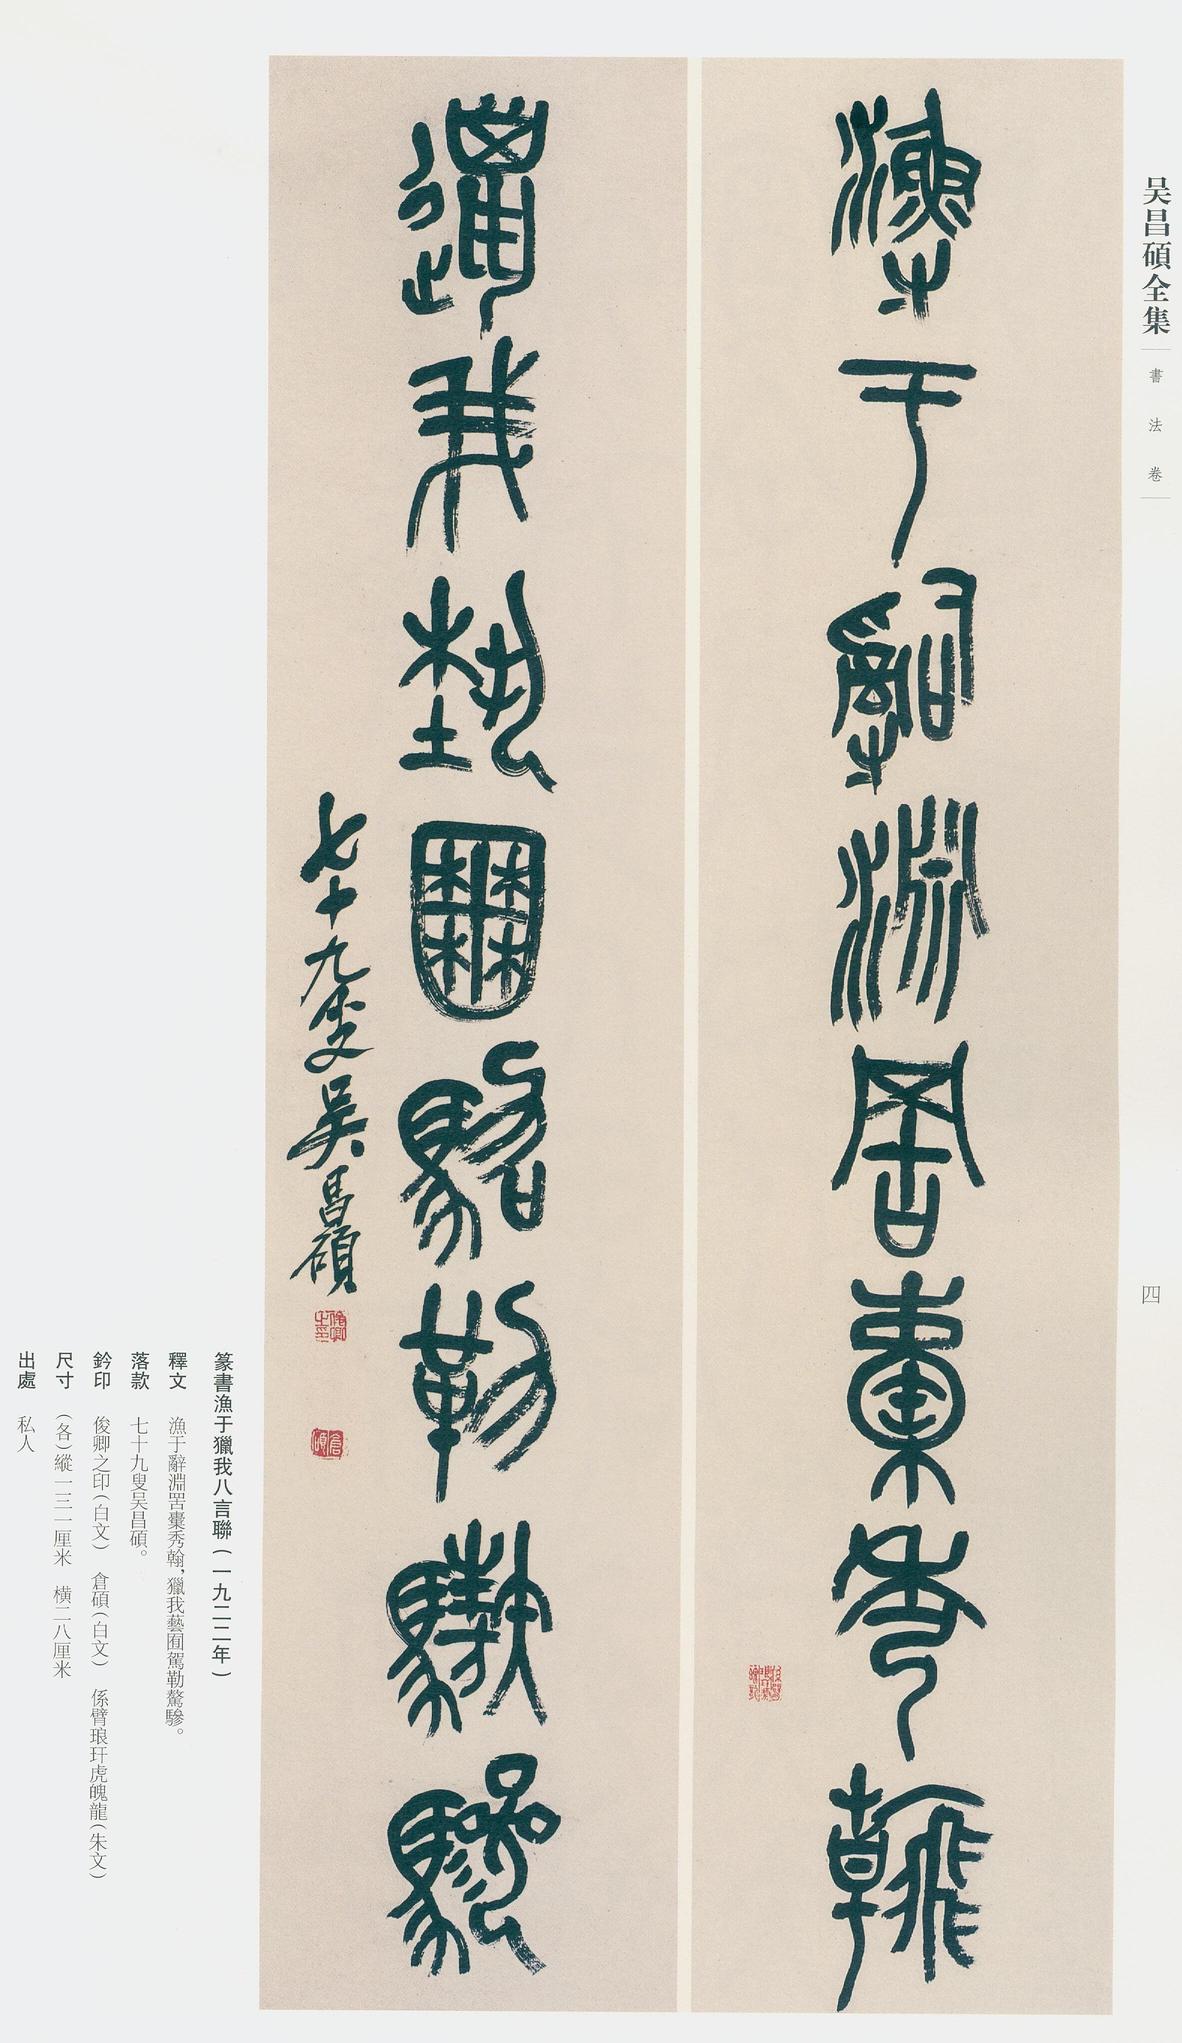 吴昌碩全集
書法卷
四
漁于辭淵罟槖秀翰
獵我藝囿駕勒驁驂
七十九叟吴昌碩
俊卿之印
倉碩
篆書漁于獵我八言聯（一九二二年）
釋文　漁于辭淵罟槖秀翰，獵我藝囿駕勒驁驂。
落款　七十九叟吴昌碩。
鈐印　俊卿之印（白文）　倉碩（白文）　係臂琅玕虎魄龍（朱文）
尺寸　（各）縱一三一厘米　橫二八厘米
出處　私人